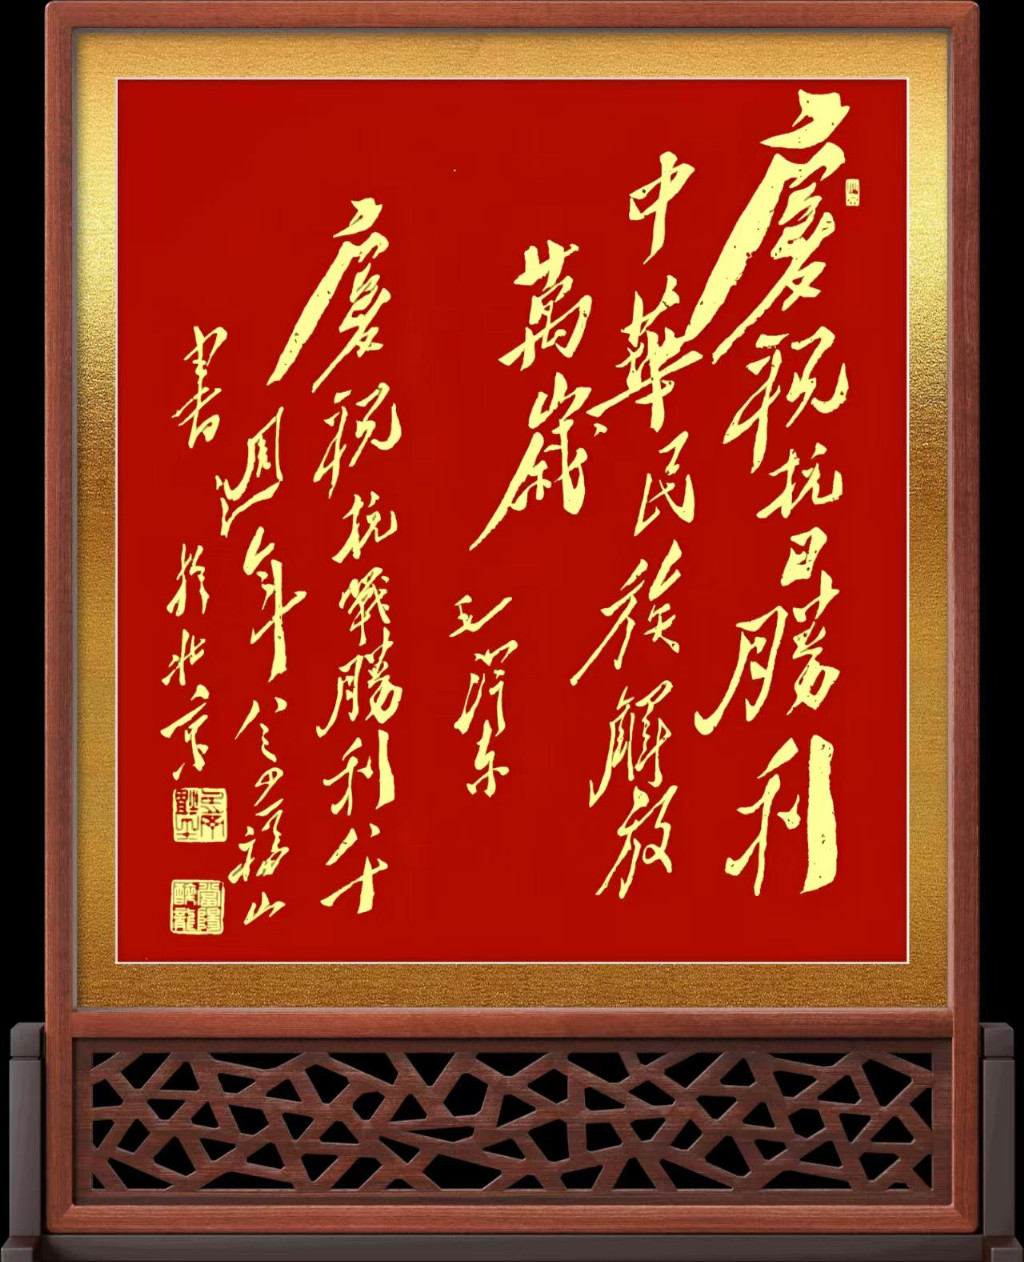 慶祝抗日勝利
中華民族解放
萬歲
毛泽东
慶祝抗戰勝利八十
週年 福山
書
於北京
當陽醉龍